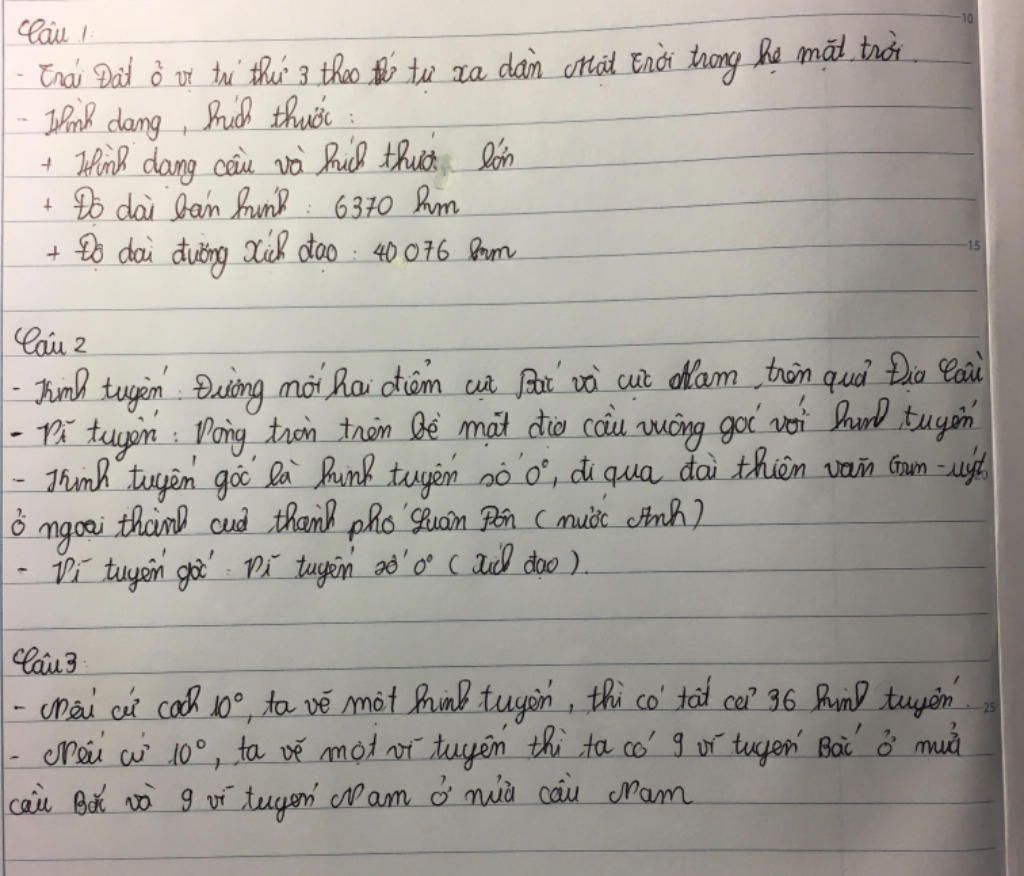 Câu 1:
- Trái Đất ở vị trí thứ 3 theo thứ tự xa dần Mặt Trời trong hệ mặt trời.
- Hình dạng, kích thước :
+ Hình dạng cầu và kích thước lớn
+ Độ dài bán kính : 6370 km
+ Độ dài đường Xích đạo : 40 076 km
Câu 2
- Kinh tuyến : Đường nối hai điểm cực Bắc và cực Nam trên quả Địa Cầu
- Vĩ tuyến : Vòng tròn trên bề mặt địa cầu vuông góc với kinh tuyến
- Kinh tuyến gốc là kinh tuyến số 0°, đi qua đài thiên văn Grin-uýt
ở ngoại thành của thành phố Luân Đôn (nước Anh)
- Vĩ tuyến gốc : Vĩ tuyến số 0° (xích đạo).
Câu 3:
- Nếu cứ cách 10°, ta vẽ một kinh tuyến, thì có tất cả 36 kinh tuyến.
- Nếu cứ 10°, ta vẽ một vĩ tuyến thì ta có 9 vĩ tuyến Bắc ở nửa
cầu Bắc và 9 vĩ tuyến Nam ở nửa cầu Nam
10
15
25